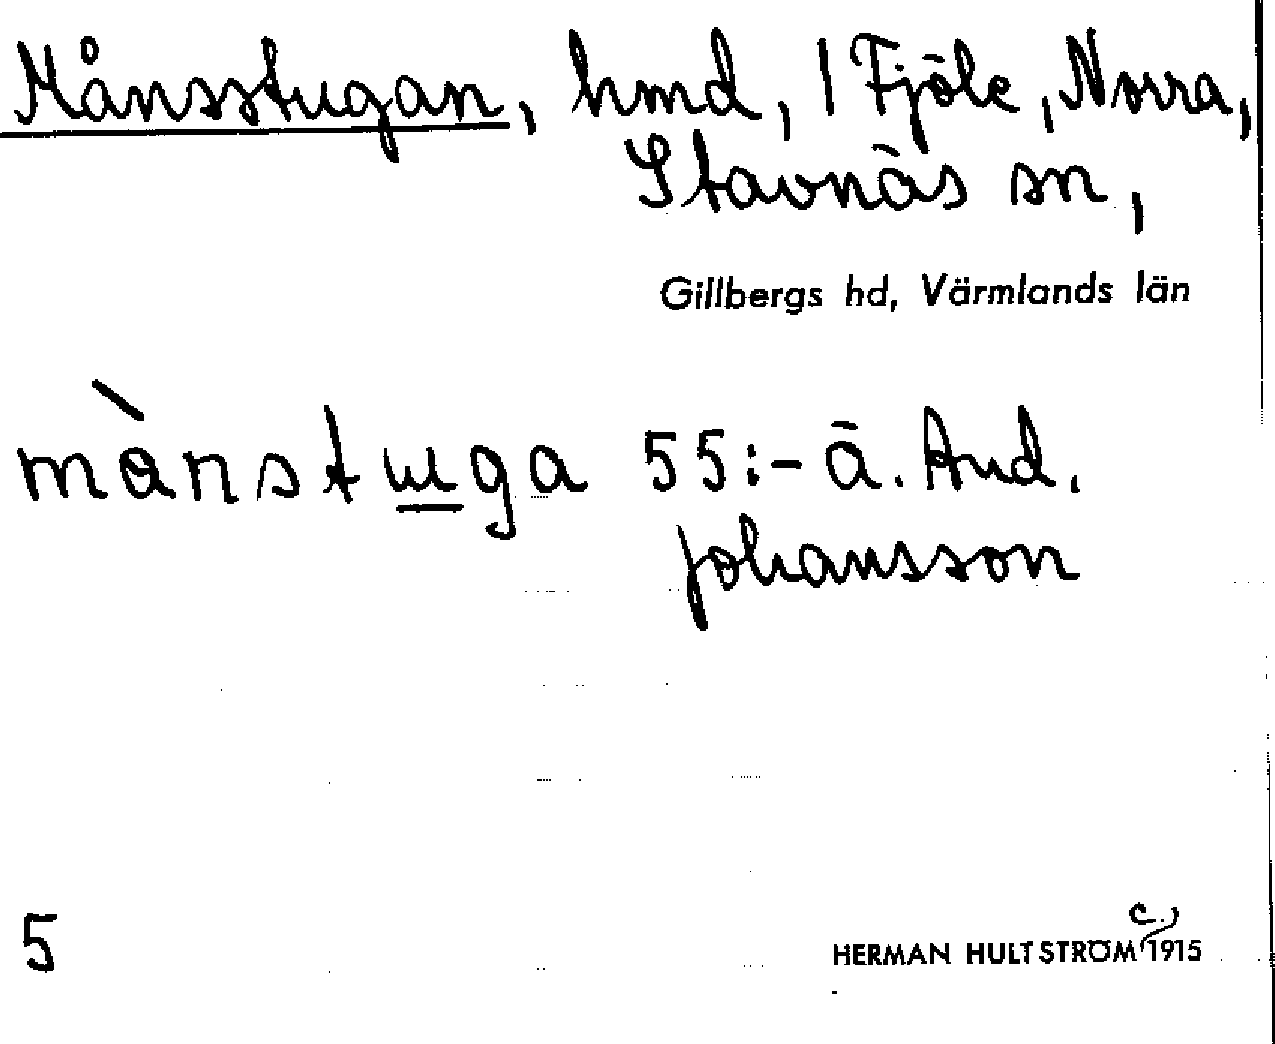 Månsstugan, hmd, 1 Fjöle, Norra,
Stavnäs sn,
Gillbergs hd, Värmlands län
mànstɯga 55:- ä. And.
Johansson
5
c.
HERMAN HULTSTRÖM 1915